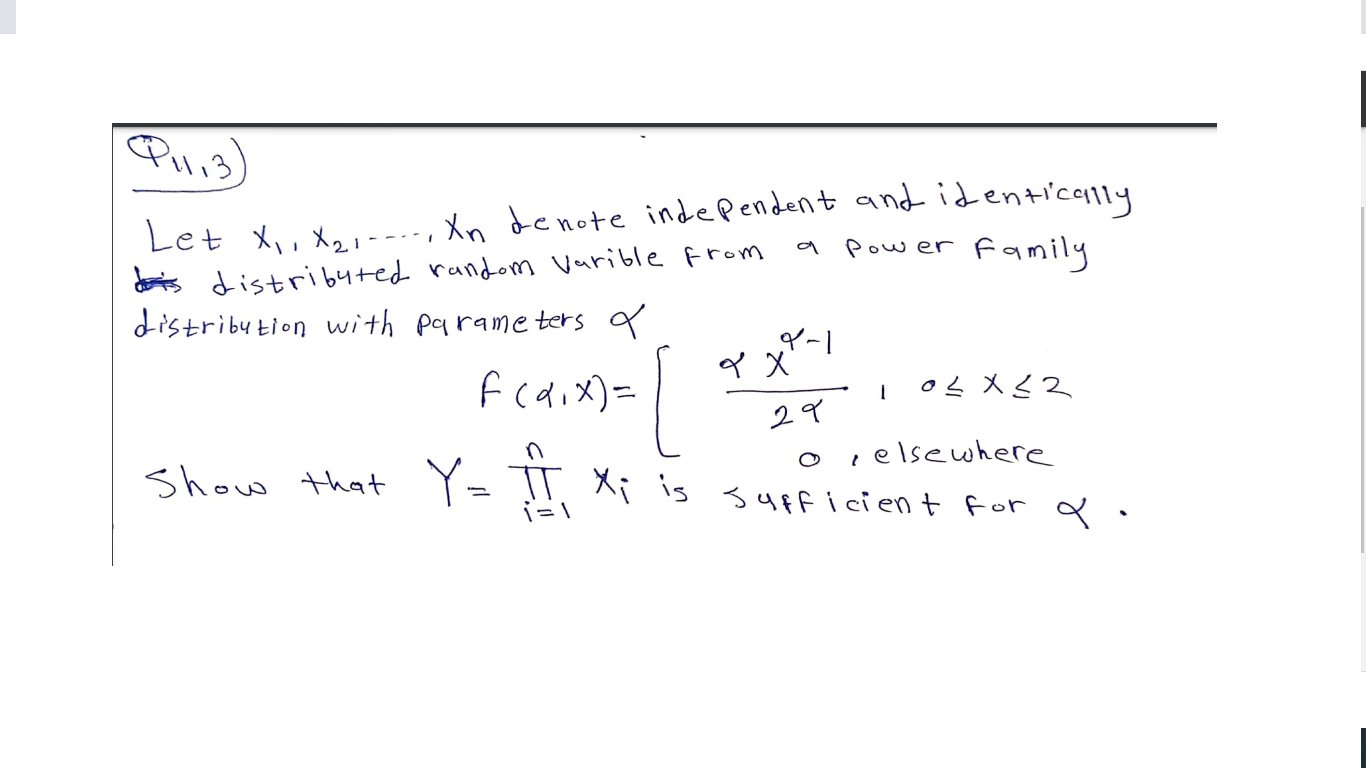 Q4,3)
Let X1, X2,-----, Xn denote independent and identically
distributed random varible from a power family
distribution with parameters α
f(α,x)= [ αx^α-1 / 2α , 0≤x≤2
0 , elsewhere
Show that Y= ∏ i=1 n Xi is sufficient for α.